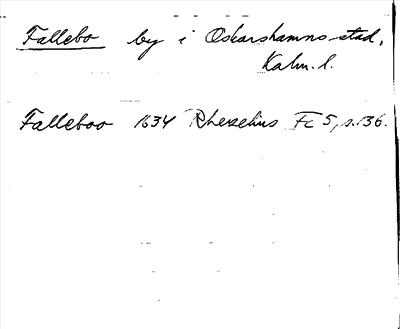 Fallebo by i Oskarshamns stad,
Kalm. l.
Falleboo 1634 Rhezelius Fc 5, s. 136.